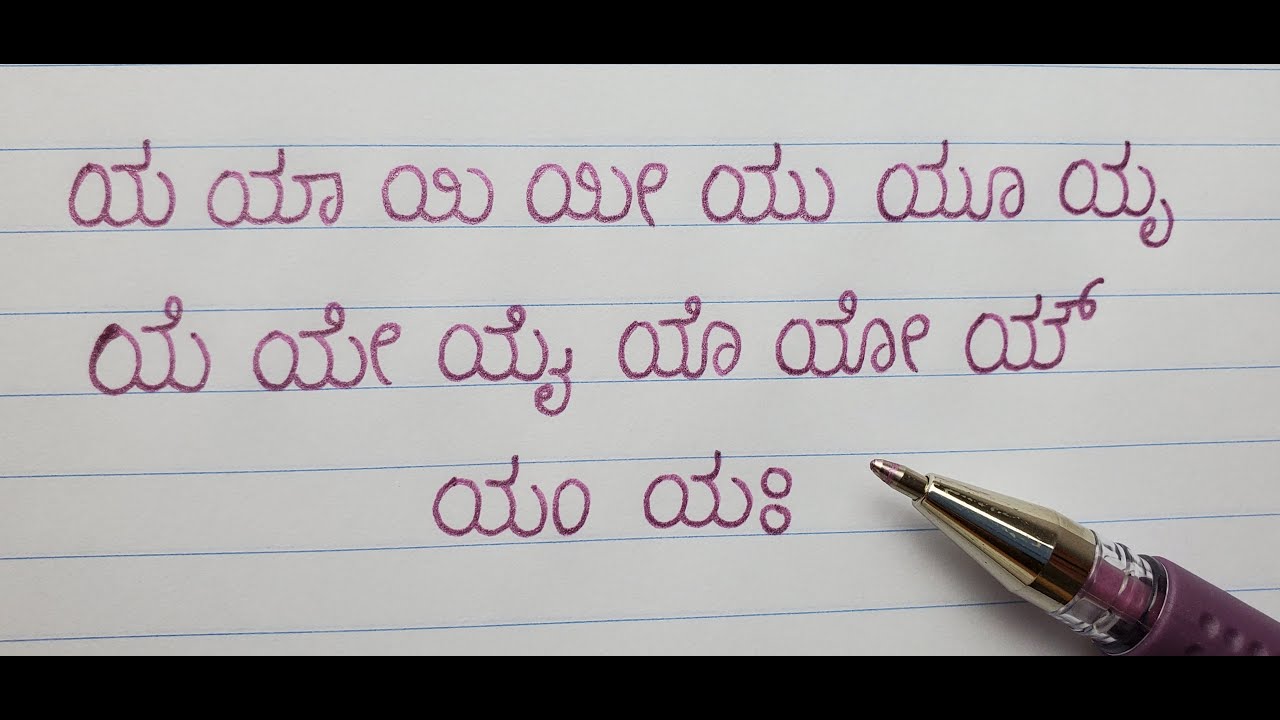 ಯ ಯಾ ಯಿ ಯೀ ಯು ಯೂ ಯೃ
ಯೆ ಯೇ ಯೈ ಯೊ ಯೋ ಯೌ
ಯಂ ಯಃ